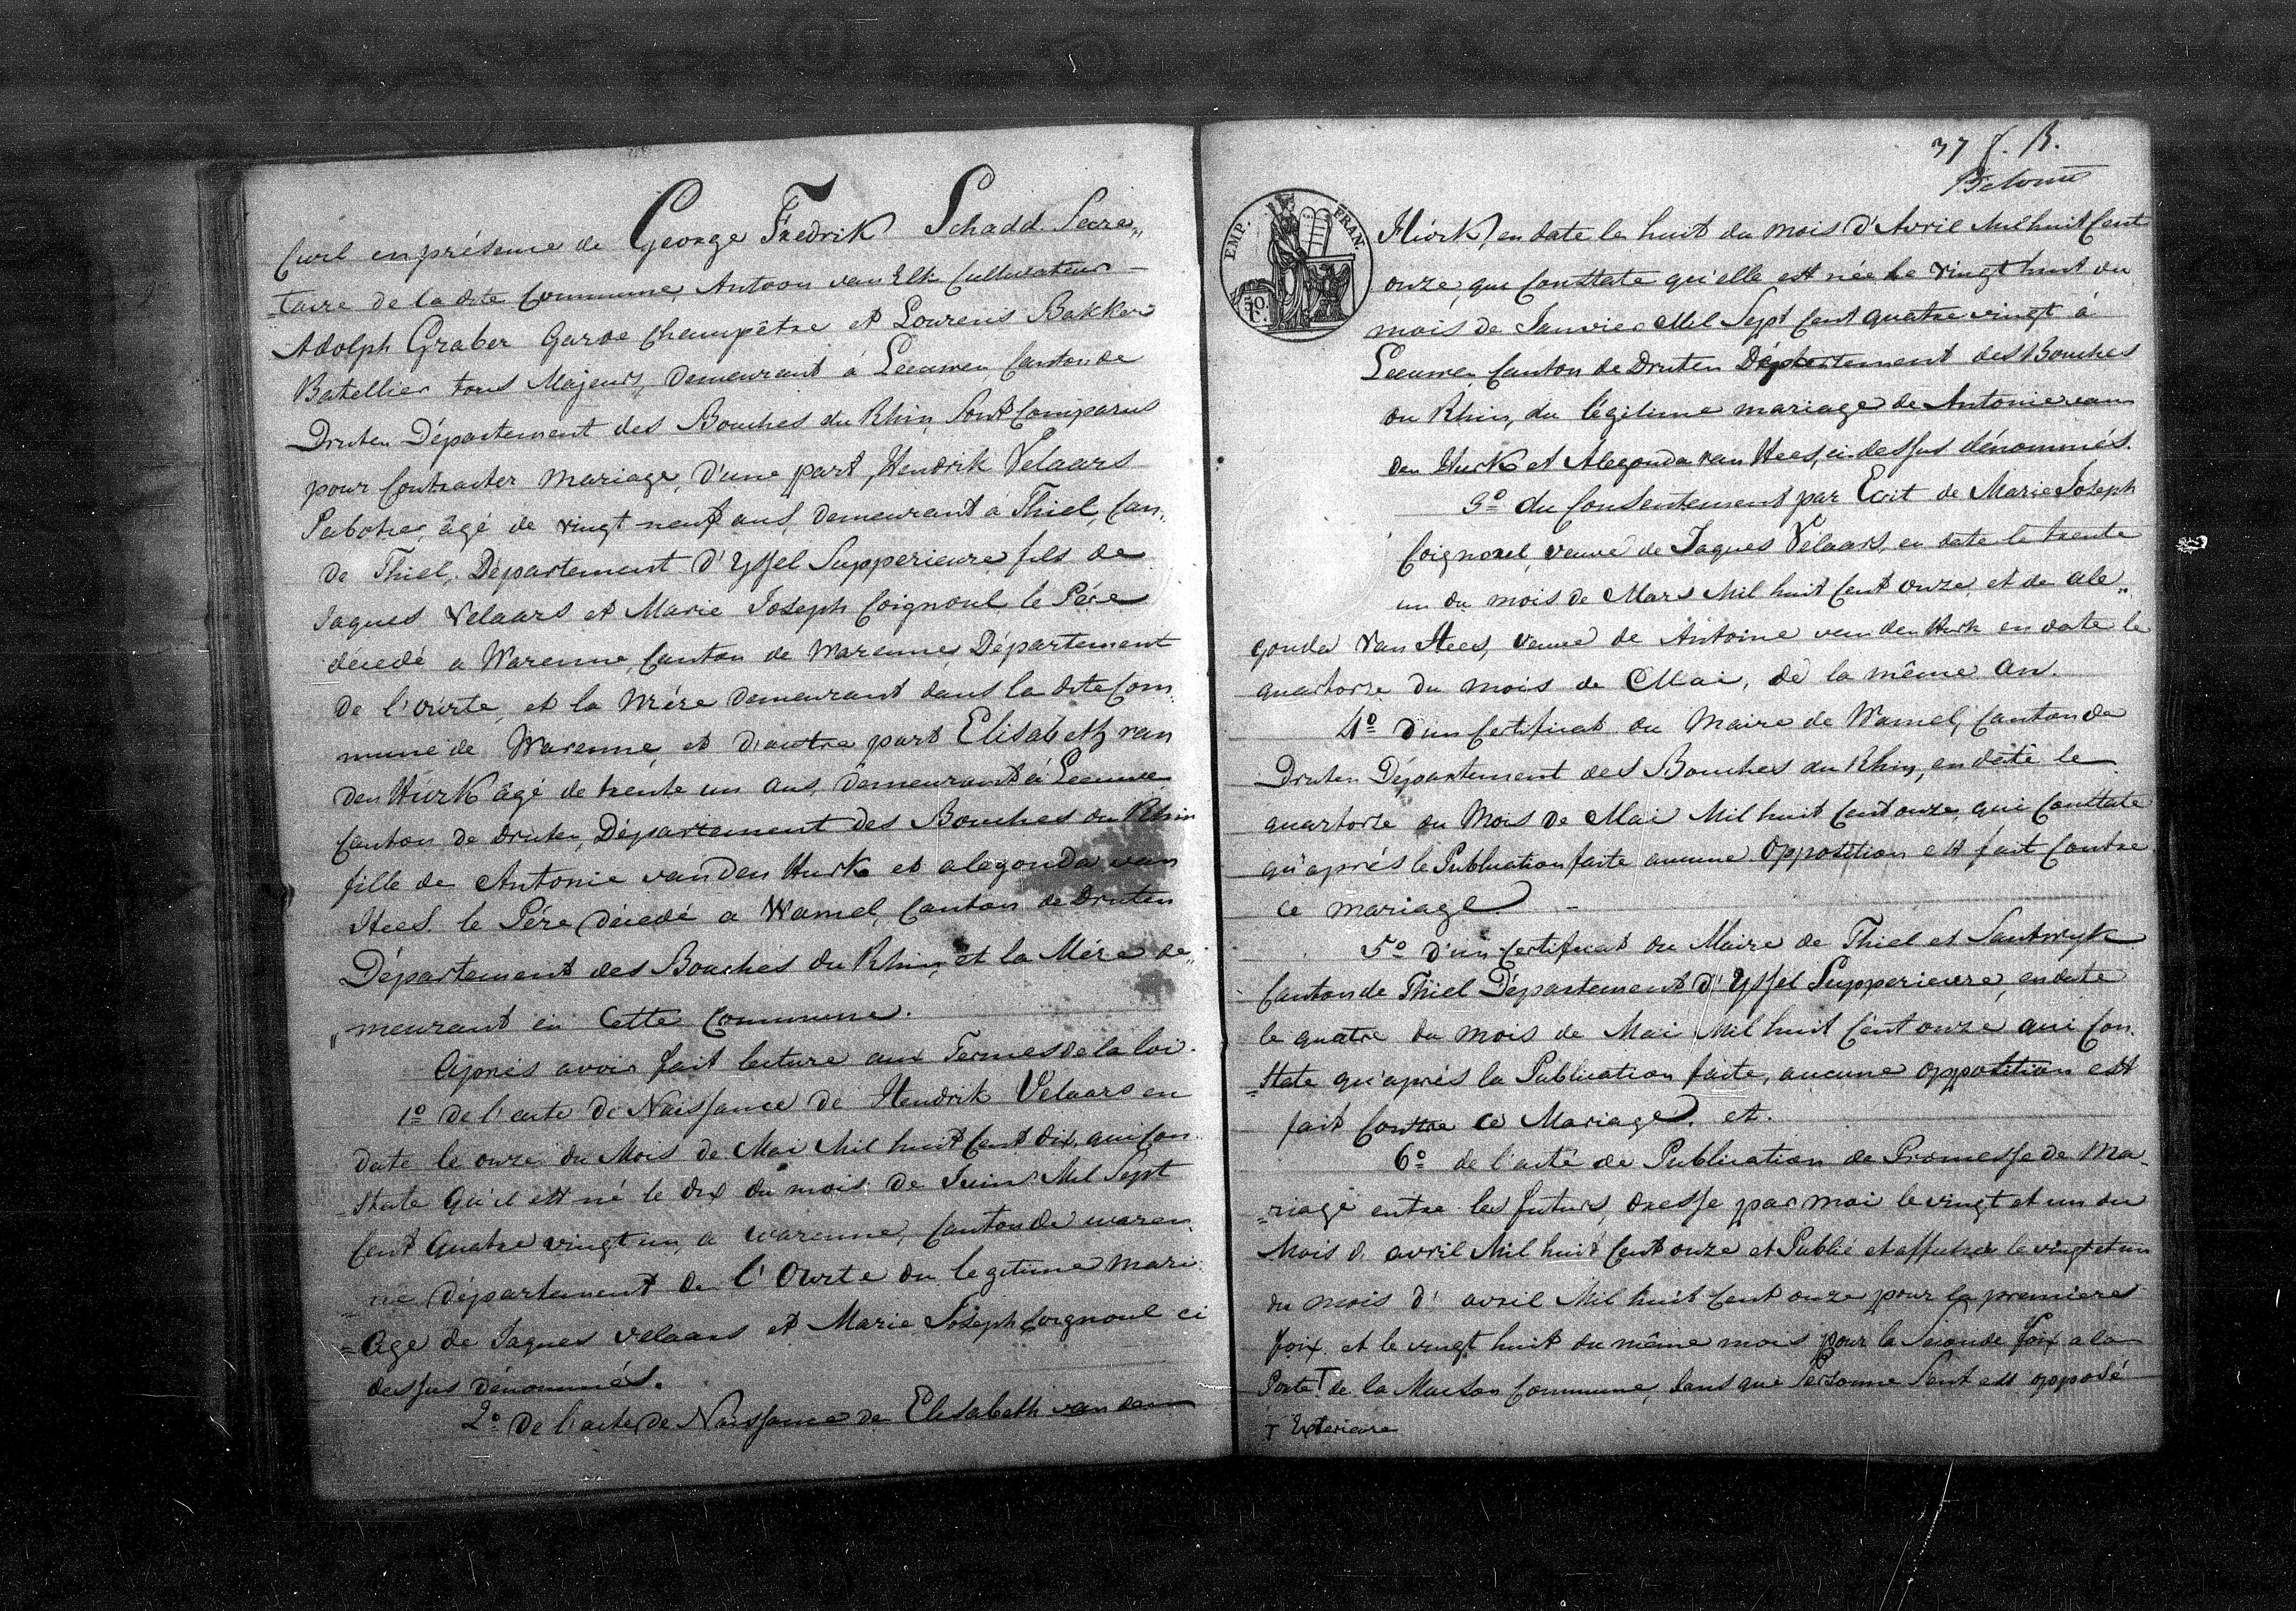 Civil en présence de George Fredrik Schadd Secre„
-taire de la dite Commune, Antoon van Elk Cultivateur
Adolph Graber Garde Champêtre et Lourens Bakker
Batellier tous Majeurs, demeurant à Leeuwen Canton de
Druten Département des Bouches du Rhin, Sont Comparus
pour Contracter Mariage, d'une part, Hendrik Velaars
Sabotier, âgé de vingt neuf ans, demeurant à Thiel, Can„
de Thiel, Département d'Yssel Supperieure fils de
Jaques Velaars et Marie Joseph Coignoul le Pére
décedé a Waremme, Canton de Waremme, Département
de l'Ourte, et la Mére demeurant dans la dite Com„
mune de Waremme, et d'autre part Elisabeth van
den Hurk âgé de trente un ans, demeurant à Leeuwen
Canton de Druten, Département des Bouches du Rhin
fille de Antonie van den Hurk et alegonda van
Hees. le Pére décedé a Wamel, Canton de Druten
Département des Bouches du Rhin, et la Mére de„
„meurant en Cette Commune.
Aprés avoir fait lecture aux Termes de la loi.
1º de l'acte de Naissance de Hendrik Velaars en
date le onze du Mois de Mai Mil huit Cent dix, qui con
-state qu'il est né le dix du mois de Juin Mil Sept
Cent Quatre vingt un, a waremme, Canton de warem
=me département de l'Ourte du legitime mari
=age de Jaques velaars et Marie Joseph Coignoul ci
dessus dénommés.
2º de l'acte de Naissance de Elisabeth van den
37 f. B.
EMP. FRAN.
50 C.
Hurk, en date le huit du mois d'Avril Mil huit Cent
onze, qui Constate qu'elle est née le vingt huit du
mois de Janvier Mil Sept Cent quatre vingt à
Leeuwen Canton de Druten Département des Bouches
du Rhin, du légitime mariage de Antonie van
den Hurk et Alegonda van Hees, ci dessus dénommés.
3º du Consentement par Ecrit de Marie Joseph
Coignoul, veuve de Jaques Velaars, en date le trente
un du mois de Mars Mil huit Cent onze, et de ale„
gonda van Hees, veuve de Antoine van den Hurk en date le
quartorze du mois de Mai, de la même an.
4º d'un Certificat du Maire de Wamel, Canton de
Druten Département des Bouches du Rhin, en date le
quartorze du Mois de Mai Mil huit Cent onze, qui Constate
qu'aprés le Publication faite aucune Opposition est fait Contre
ce mariage.
5º d'un Certificat du Maire de Thiel et Santwyk
Canton de Thiel Département d'Yssel Supperieure, en date
le quatre du mois de Mai Mil huit Cent onze qui Con„
=state qu'aprés la Publication faite, aucune opposition est
fait Contre ce Mariage. et.
6º de l'acte de Publication de Promesse de Ma„
=riage entre les futurs, dresse par moi le vingt et un du
Mois d'avril Mil huit Cent onze et Publié et affiché le vingt et un
du mois d'avril Mil huit Cent onze pour la premiere
foix et le vingt huit du même mois pour la Seconde foix a la
Porte T de la Maison Commune, Sans que Personne S'ent est opposé
T Exterieure